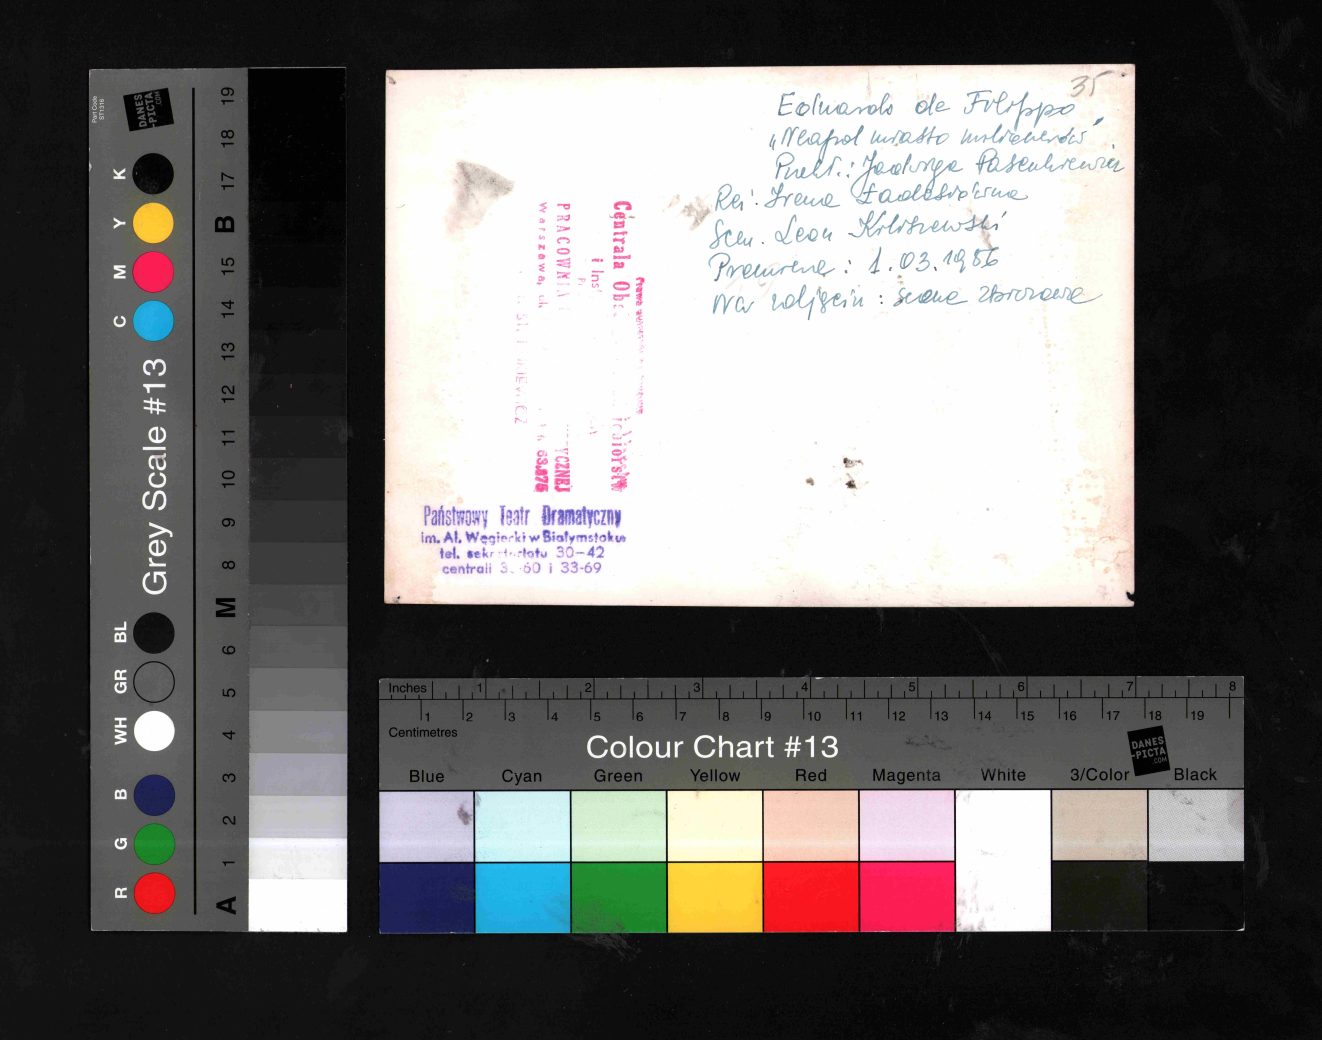 35
Eduardo de Filippo
„Neapol miasto milionerów"
Przekł.: Jadwiga Pasenkiewicz
Reż. Irena
Scen. Leon
Premiera: 1.03.1986
Na zdjęciu: scena zbiorowa
Prawa autorskie
Centrala Ob
i Ins
PRACOWNIA
YCZNEJ
Warszawa, ul.
Państwowy Teatr Dramatyczny
im. Al. Węgierki w Białymstoku
tel. sekretariatu 30-42
centrali 60 i 33-69
Part Code
ST1316
DANES
-PICTA
.COM
Grey Scale #13
R G B WH GR BL C M Y K
A 1 2 3 4 5 6 M 8 9 10 11 12 13 14 15 B 17 18 19
Inches 1 2 3 4 5 6 7 8
1 2 3 4 5 6 7 8 9 10 11 12 13 14 15 16 17 18 19
Centimetres
Colour Chart #13
DANES
-PICTA
.COM
Blue Cyan Green Yellow Red Magenta White 3/Color Black